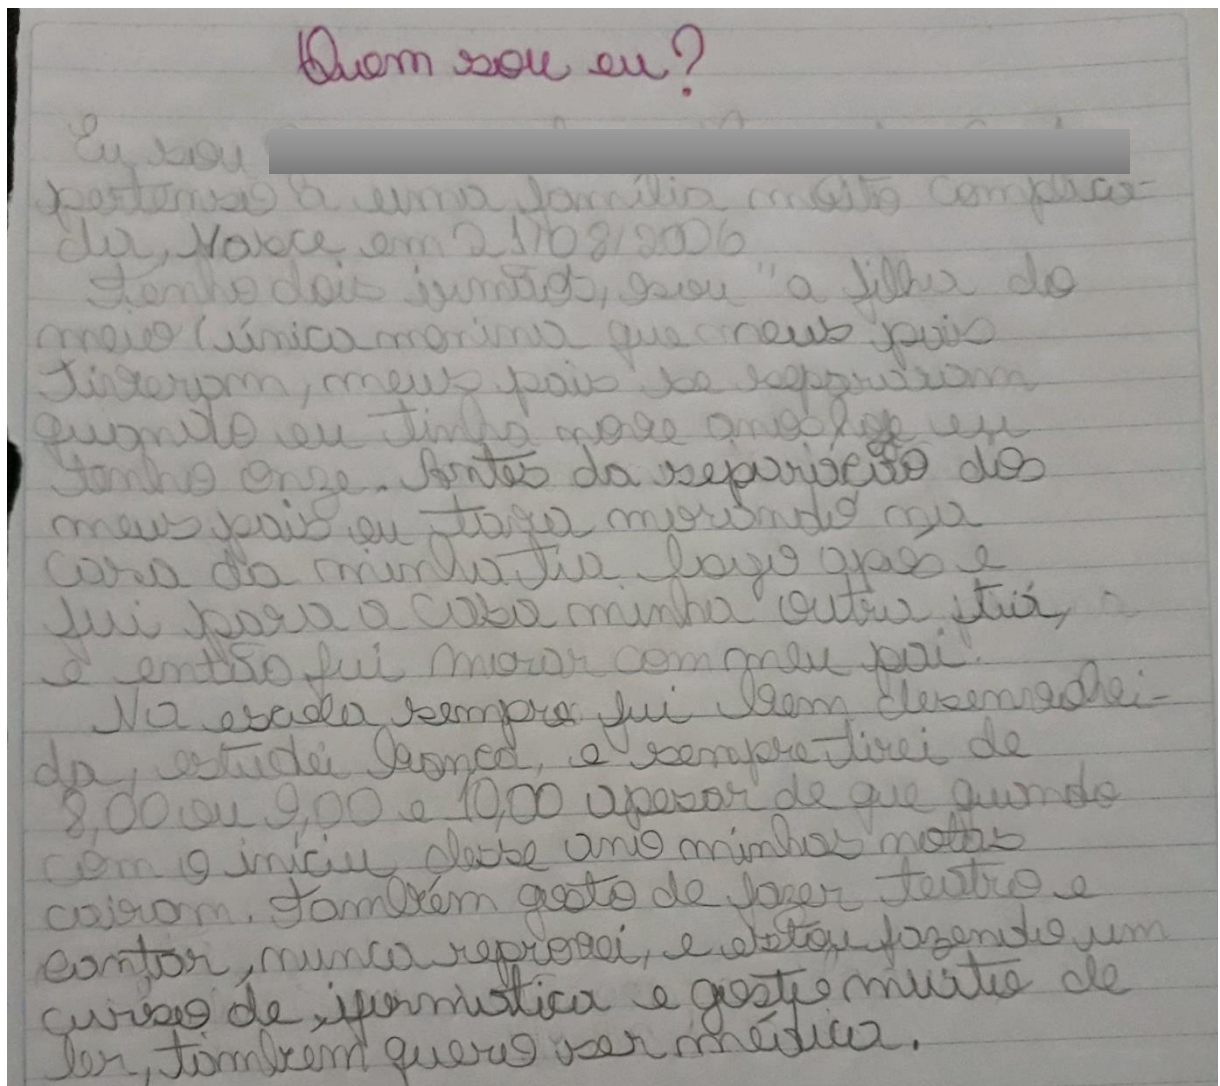 Quem sou eu?
Eu sou
pertenso a uma família muito complica-
da, Nasce em 21/08/2006
Tenho dois irmãos, sou "a filha do
meio (única menina que meus pais
tiveram, meus pais se separaram
quando eu tinha nove anos hoje eu
tenho onze. Antes da separação dos
meus pais eu tava morando na
casa da minha tia logo apos e
fui para a casa minha outra tia,
e então fui morar com meu pai.
Na escola sempre fui bem
da, estudei e sempre tirei de
8,00 ou 9,00 e 10,00 apesar de que quando
com o iniciu desse ano minhas notas
cairam. Também gosto de fazer teatro e
cantar, nunca reprovei, e estou fazendo um
curso de e gosto muito de
ler, tambem quero ser médica.